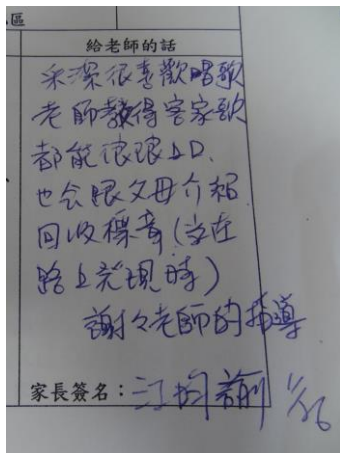 區
給老師的話
采深很喜歡唱歌
老師教得客家歌
都能琅琅上口、
也会跟父母介紹
回收標章(当在
路上发現時)
謝々老師的指導
家長簽名:江昀諭 1/26